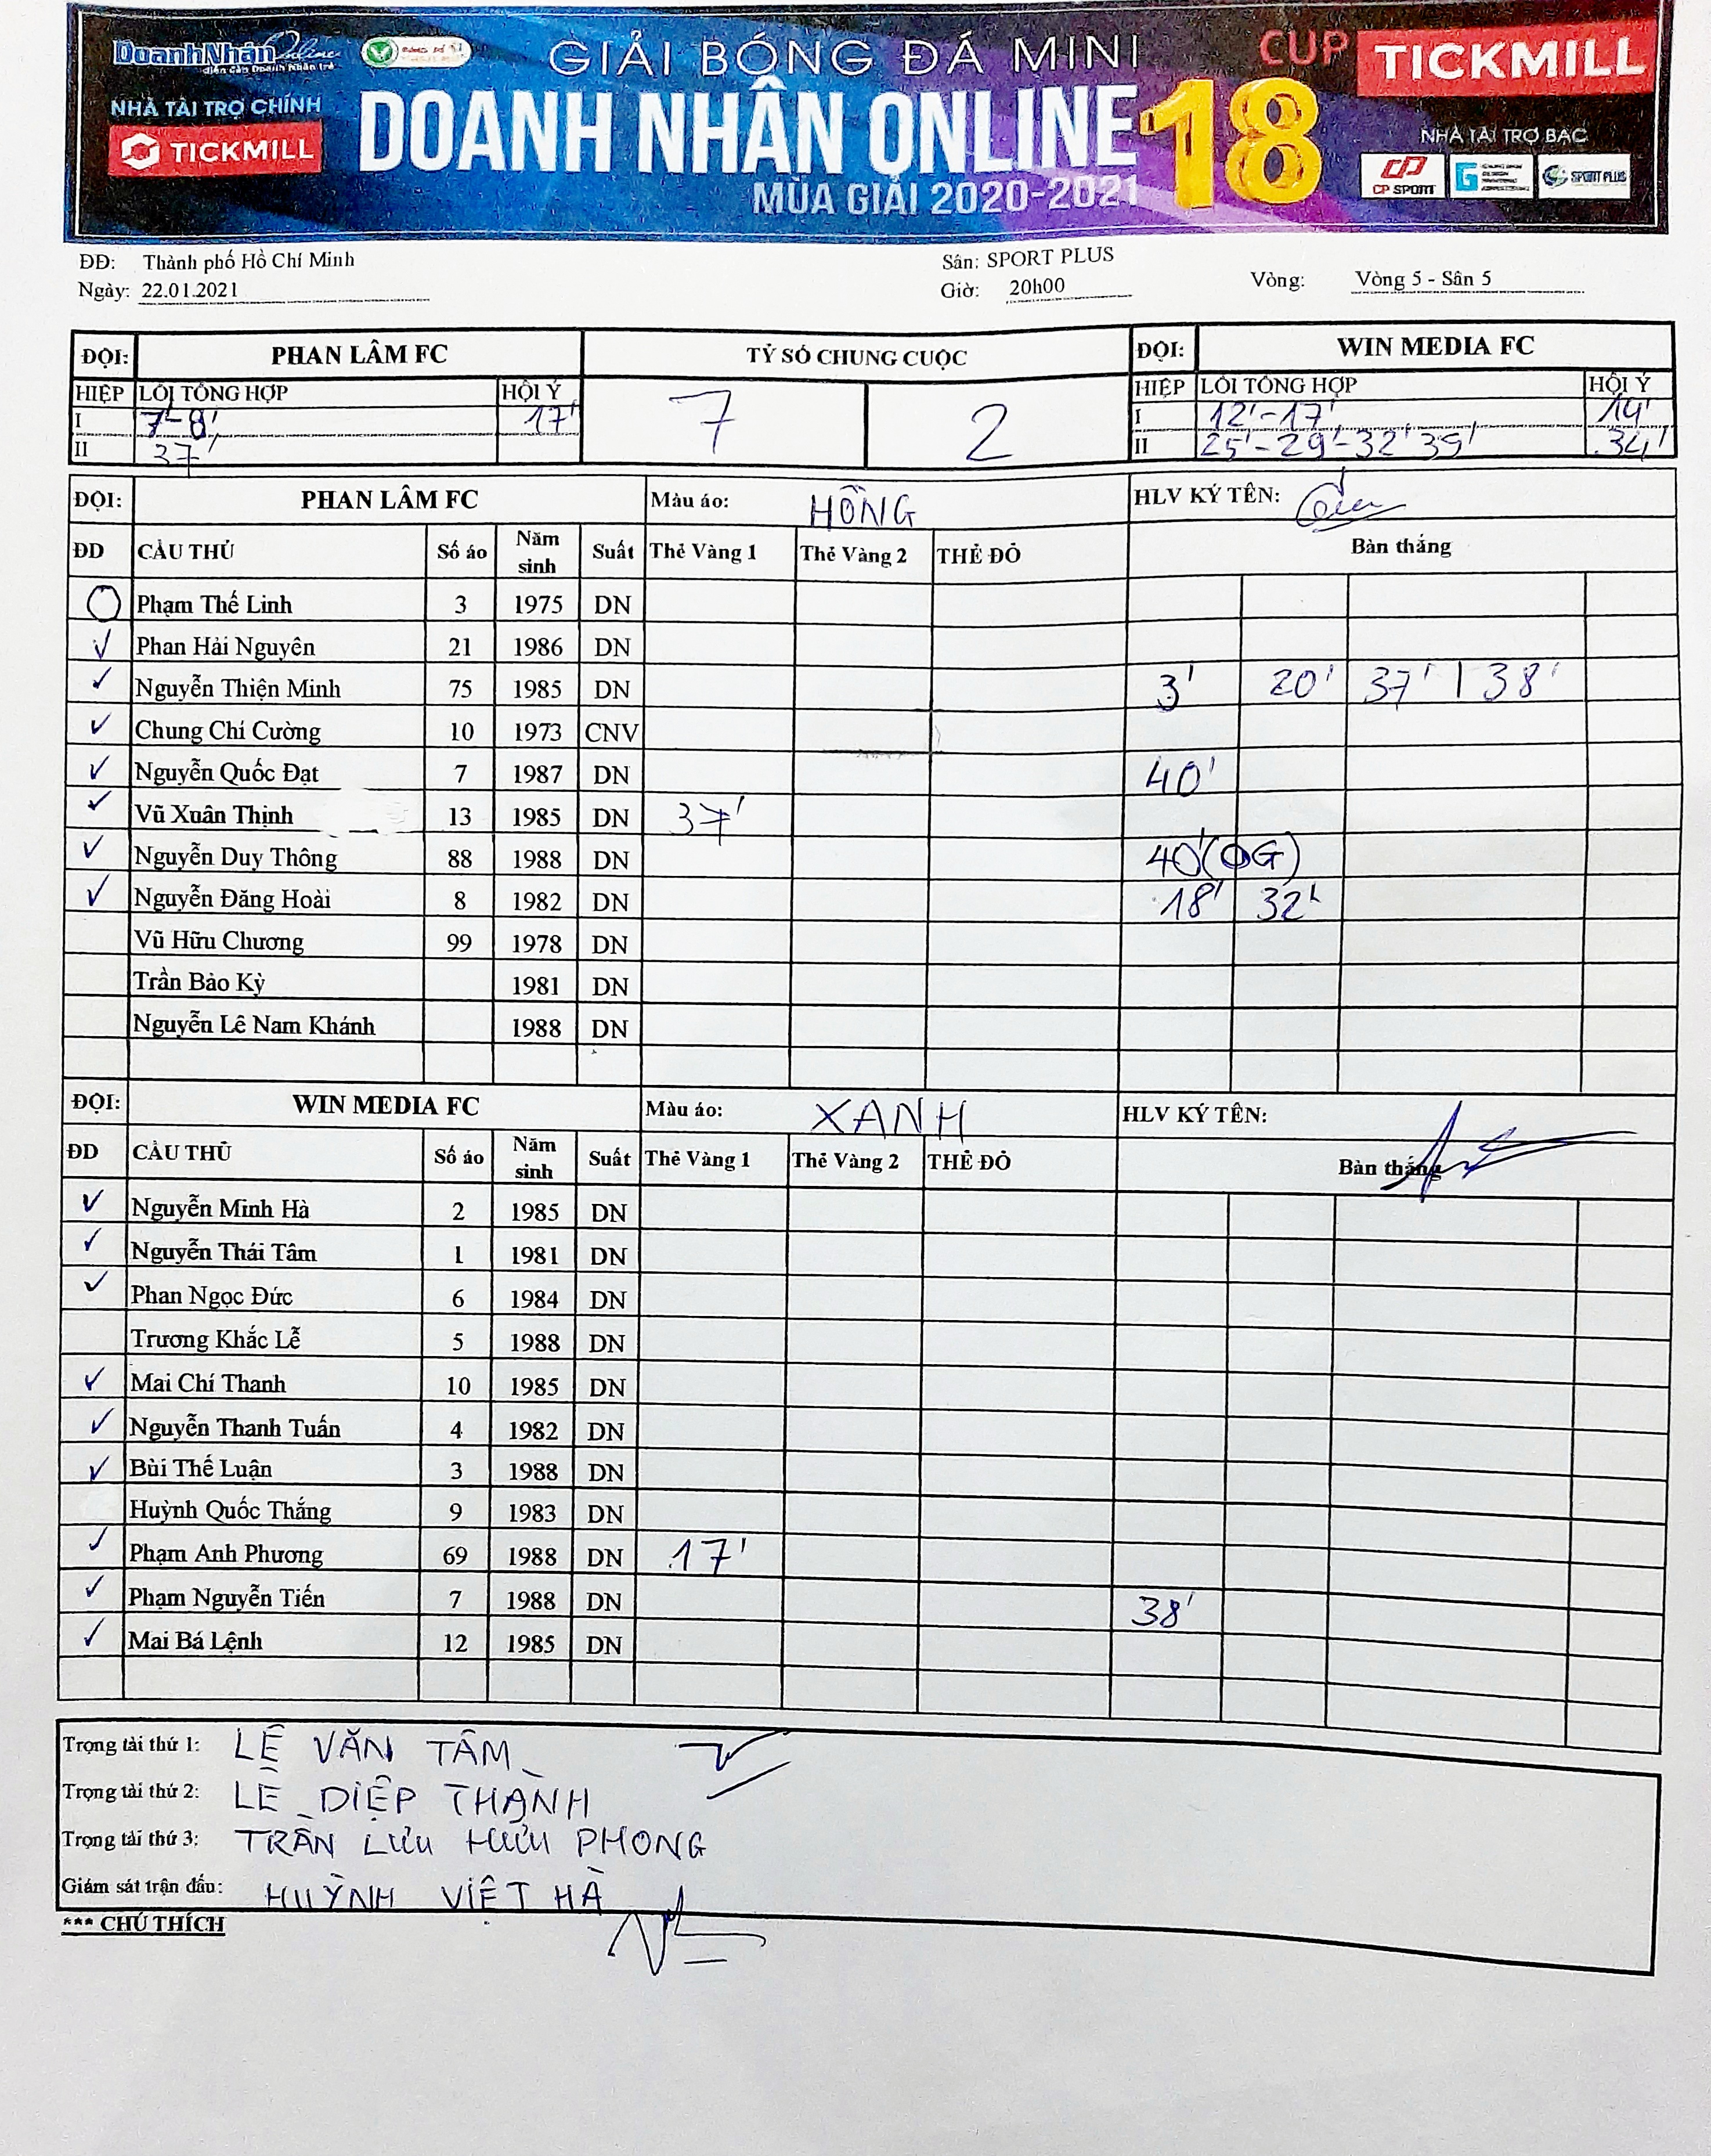 DoanhNhân Online
diễn đàn Doanh Nhân trẻ
GIẢI BÓNG ĐÁ MINI CUP TICKMILL
NHÀ TÀI TRỢ CHÍNH
TICKMILL
DOANH NHÂN ONLINE 18
MÙA GIẢI 2020-2021
NHÀ TÀI TRỢ BẠC
CP SPORT SPORT PLUS
ĐĐ: Thành phố Hồ Chí Minh Sân: SPORT PLUS
Ngày: 22.01.2021 Giờ: 20h00 Vòng: Vòng 5 - Sân 5
ĐỘI: PHAN LÂM FC TỶ SỐ CHUNG CUỘC ĐỘI: WIN MEDIA FC
HIỆP LỖI TỔNG HỢP HỘI Ý 7 2 HIỆP LỖI TỔNG HỢP HỘI Ý
I 7'-8' 17' I 12'-17' 14'
II 37' II 25'-29'-32' 39' 34'
ĐỘI: PHAN LÂM FC Màu áo: HỒNG HLV KÝ TÊN:
ĐD CẦU THỦ Số áo Năm sinh Suất Thẻ Vàng 1 Thẻ Vàng 2 THẺ ĐỎ Bàn thắng
Phạm Thế Linh 3 1975 DN
✓ Phan Hải Nguyên 21 1986 DN
✓ Nguyễn Thiện Minh 75 1985 DN 3' 20' 37' | 38'
✓ Chung Chí Cường 10 1973 CNV
✓ Nguyễn Quốc Đạt 7 1987 DN 40'
✓ Vũ Xuân Thịnh 13 1985 DN 37'
✓ Nguyễn Duy Thông 88 1988 DN 40'(OG)
✓ Nguyễn Đăng Hoài 8 1982 DN 18' 32'
Vũ Hữu Chương 99 1978 DN
Trần Bảo Kỳ 1981 DN
Nguyễn Lê Nam Khánh 1988 DN
ĐỘI: WIN MEDIA FC Màu áo: XANH HLV KÝ TÊN:
ĐD CẦU THỦ Số áo Năm sinh Suất Thẻ Vàng 1 Thẻ Vàng 2 THẺ ĐỎ Bàn thắng
✓ Nguyễn Minh Hà 2 1985 DN
✓ Nguyễn Thái Tâm 1 1981 DN
✓ Phan Ngọc Đức 6 1984 DN
Trương Khắc Lễ 5 1988 DN
✓ Mai Chí Thanh 10 1985 DN
✓ Nguyễn Thanh Tuấn 4 1982 DN
✓ Bùi Thế Luận 3 1988 DN
Huỳnh Quốc Thắng 9 1983 DN
✓ Phạm Anh Phương 69 1988 DN 17'
✓ Phạm Nguyễn Tiến 7 1988 DN 38'
✓ Mai Bá Lệnh 12 1985 DN
Trọng tài thứ 1: LÊ VĂN TÂM
Trọng tài thứ 2: LÊ DIỆP THÀNH
Trọng tài thứ 3: TRẦN LƯU HỮU PHONG
Giám sát trận đấu: HUỲNH VIỆT HÀ
*** CHÚ THÍCH